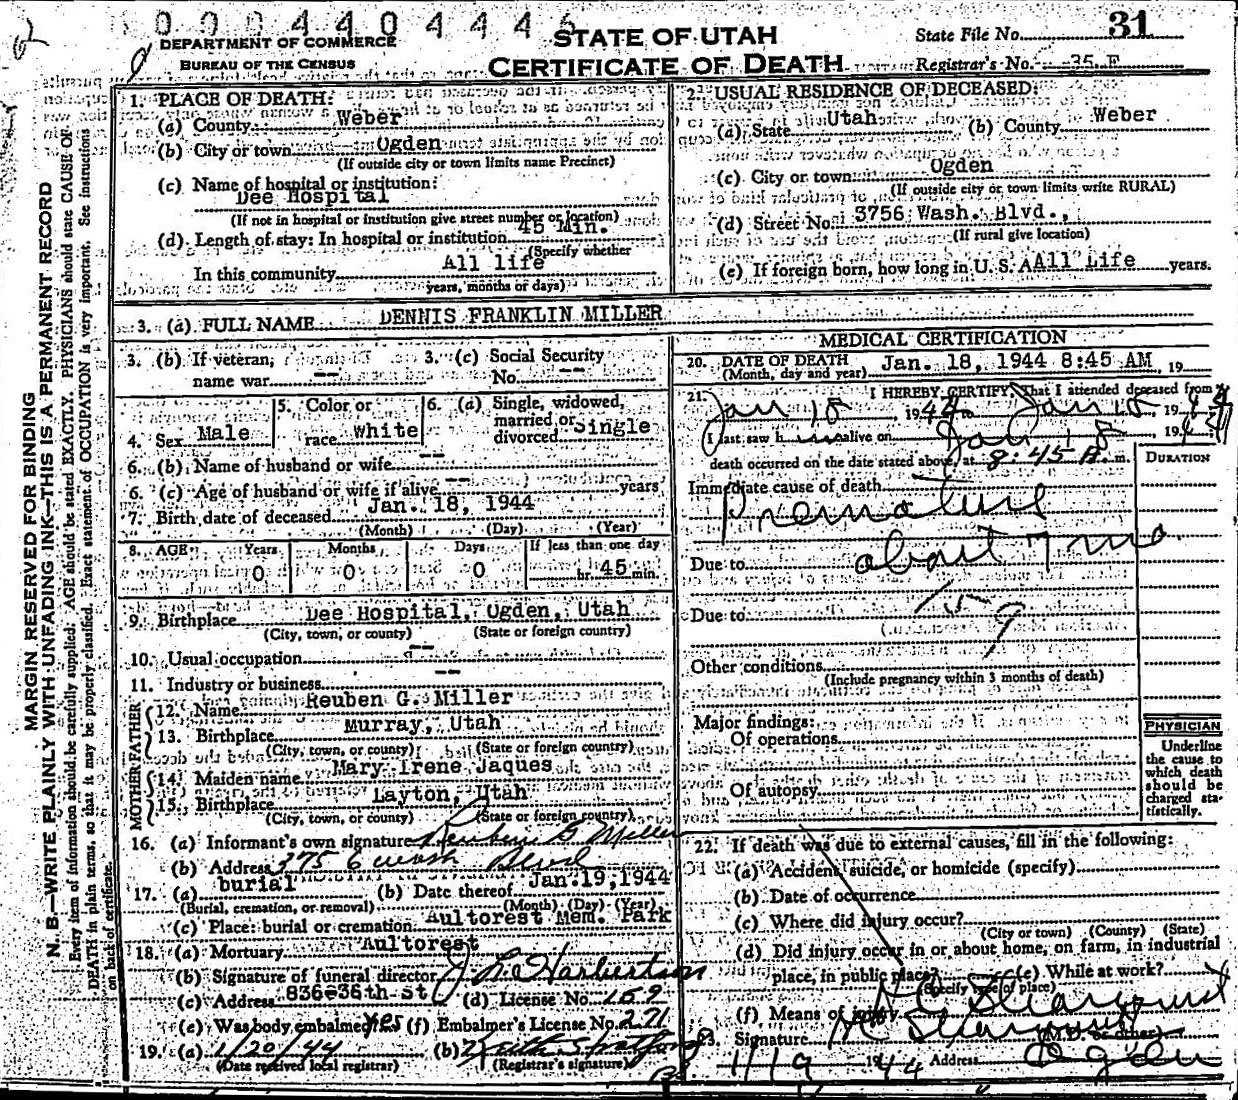 0004404446
DEPARTMENT OF COMMERCE
BUREAU OF THE CENSUS
STATE OF UTAH
CERTIFICATE OF DEATH
State File No. 31
Registrar's No. 35 F
MARGIN RESERVED FOR BINDING
N. B.—WRITE PLAINLY WITH UNFADING INK—THIS IS A PERMANENT RECORD
Every item of information should be carefully supplied. AGE should be stated EXACTLY. PHYSICIANS should state CAUSE OF
DEATH in plain terms, so that it may be properly classified. Exact statement of OCCUPATION is very important. See instructions
on back of certificate.
1. PLACE OF DEATH:
(a) County Weber
(b) City or town Ogden
(If outside city or town limits name Precinct)
(c) Name of hospital or institution:
Dee Hospital
(If not in hospital or institution give street number or location)
(d) Length of stay: In hospital or institution 45 Min.
(Specify whether
In this community All life
years, months or days)
2. USUAL RESIDENCE OF DECEASED:
(a) State Utah (b) County Weber
(c) City or town Ogden
(If outside city or town limits write RURAL)
(d) Street No. 3756 Wash. Blvd.,
(If rural give location)
(e) If foreign born, how long in U. S. A. All Life years.
3. (a) FULL NAME DENNIS FRANKLIN MILLER
3. (b) If veteran, name war --
3. (c) Social Security No. --
4. Sex Male
5. Color or race White
6. (a) Single, widowed, married or divorced Single
6. (b) Name of husband or wife --
6. (c) Age of husband or wife if alive -- years
7. Birth date of deceased Jan. 18, 1944
(Month) (Day) (Year)
8. AGE Years Months Days If less than one day
0 0 0 hr. 45 min.
9. Birthplace Dee Hospital, Ogden, Utah
(City, town, or county) (State or foreign country)
10. Usual occupation --
11. Industry or business --
FATHER
12. Name Reuben G. Miller
13. Birthplace Murray, Utah
(City, town, or county) (State or foreign country)
MOTHER
14. Maiden name Mary Irene Jaques
15. Birthplace Layton, Utah
(City, town, or county) (State or foreign country)
16. (a) Informant's own signature Reuben G Miller
(b) Address 3756 Wash Blvd
17. (a) burial (b) Date thereof Jan.19,1944
(Burial, cremation, or removal) (Month) (Day) (Year)
(c) Place: burial or cremation Aultorest Mem. Park
18. (a) Mortuary Aultorest
(b) Signature of funeral director J. L. Harbertson
(c) Address 836-36th-St (d) License No. 159
(e) Was body embalmed? Yes (f) Embalmer's License No. 271
19. (a) 1/20/44 (b) Keith Stratford
(Date received local registrar) (Registrar's signature)
MEDICAL CERTIFICATION
20. DATE OF DEATH Jan. 18, 1944 8:45 AM, 19
(Month, day and year)
21. I HEREBY CERTIFY, That I attended deceased from
Jan 18 1944 Jan 18, 1944
I last saw h alive on Jan 18, 194
death occurred on the date stated above, at 8:45 A. m.
DURATION
Immediate cause of death
Premature
Due to about 7 mo.
Due to 159
Other conditions
(Include pregnancy within 3 months of death)
Major findings:
Of operations
Of autopsy
PHYSICIAN
Underline
the cause to
which death
should be
charged sta-
tistically.
22. If death was due to external causes, fill in the following:
(a) Accident, suicide, or homicide (specify)
(b) Date of occurrence
(c) Where did injury occur?
(City or town) (County) (State)
(d) Did injury occur in or about home, on farm, in industrial
place, in public place? (e) While at work?
(Specify type of place)
(f) Means of injury
23. Signature (M.D. or other)
1/19 1944 Address Ogden